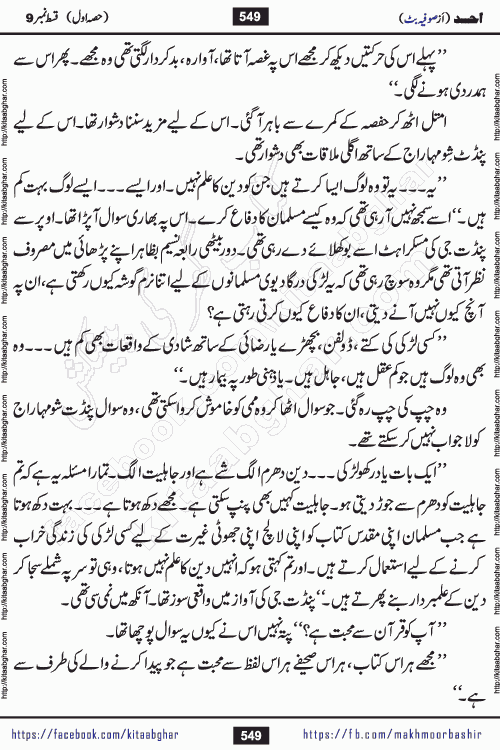 احد (از صوفیہ بٹ) 549 (حصہ اول) قسط نمبر 9
”پہلے اس کی حرکتیں دیکھ کر مجھے اس پہ غصہ آتا تھا، آوارہ، بدکردار لگتی تھی وہ مجھے۔ پھر اس سے
ہمدردی ہونے لگی۔“
امتل اٹھ کر حفصہ کے کمرے سے باہر آ گئی۔ اس کے لیے مزید سننا دشوار تھا۔ اس کے لیے
پنڈٹ شومہاراج کے ساتھ اگلی ملاقات بھی دشوار تھی۔
”یہ۔۔۔ یہ تو وہ لوگ ایسا کرتے ہیں جن کو دین کا علم نہیں۔ اور ایسے۔۔۔ ایسے لوگ بہت کم
ہیں۔“ اسے سمجھ نہیں آ رہی تھی کہ وہ کیسے مسلمان کا دفاع کرے۔ اس پہ بھاری سوال آ پڑا تھا۔ اوپر سے
پنڈت جی کی مسکراہٹ اسے بوکھلائے دے رہی تھی۔ دور بیٹھی رابعہ تسیم بظاہر اپنے پڑھائی میں مصروف
نظر آتی تھی مگر وہ سوچ رہی تھی کہ یہ لڑکی درگا دیوی مسلمانوں کے لیے اتنا نرم گوشہ کیوں رکھتی ہے، ان پہ
آنچ کیوں نہیں آنے دیتی، ان کا دفاع کیوں کرتی رہتی ہے؟
”کسی لڑکی کی کتے، ڈولفن، بچھڑے یا رضائی کے ساتھ شادی کے واقعات بھی کم ہیں۔۔۔ وہ
بھی وہ لوگ ہیں جو کم عقل ہیں، جاہل ہیں۔ یا ذہنی طور پہ بیمار ہیں۔“
وہ چپ کی چپ رہ گئی۔ جو سوال اٹھا کر وہ ممی کو خاموش کروا سکتی تھی، وہ سوال پنڈت شومہاراج
کو لاجواب نہیں کر سکتے تھے۔
”ایک بات یاد رکھو لڑکی۔۔۔ دین دھرم الگ شے ہے اور جاہلیت الگ۔ تمہارا مسئلہ یہ ہے کہ تم
جاہلیت کو دھرم سے جوڑ دیتی ہو۔ جاہلیت کہیں بھی پنپ سکتی ہے۔ مجھے دکھ ہوتا ہے۔۔۔ بہت دکھ ہوتا
ہے جب مسلمان اپنی مقدس کتاب کو اپنی لالچ اپنی جھوٹی غیرت کے لیے کسی لڑکی کی زندگی خراب
کرنے کے لیے استعمال کرتے ہیں۔ اور تم کہتی ہو کہ انہیں دین کا علم نہیں ہوتا، وہی تو سر پہ شملے سجا کر
دین کے علمبردار بنے پھرتے ہیں۔“ پنڈت جی کی آواز میں واقعی سوز تھا۔ آنکھ میں نمی سی تھی۔
”آپ کو قرآن سے محبت ہے؟“ پتہ نہیں اس نے کیوں یہ سوال پوچھا تھا۔
”مجھے ہر اس کتاب، ہر اس صحیفے ہر اس لفظ سے محبت ہے جو پیدا کرنے والے کی طرف سے
ہے۔“
https://facebook.com/kitaabghar 549 https://fb.com/makhmoorbashir
http://kitaabghar.com http://kitaabghar.com http://kitaabghar.com http://kitaabghar.com http://kitaabghar.com http://kitaabghar.com http://kitaabghar.com http://kitaabghar.com